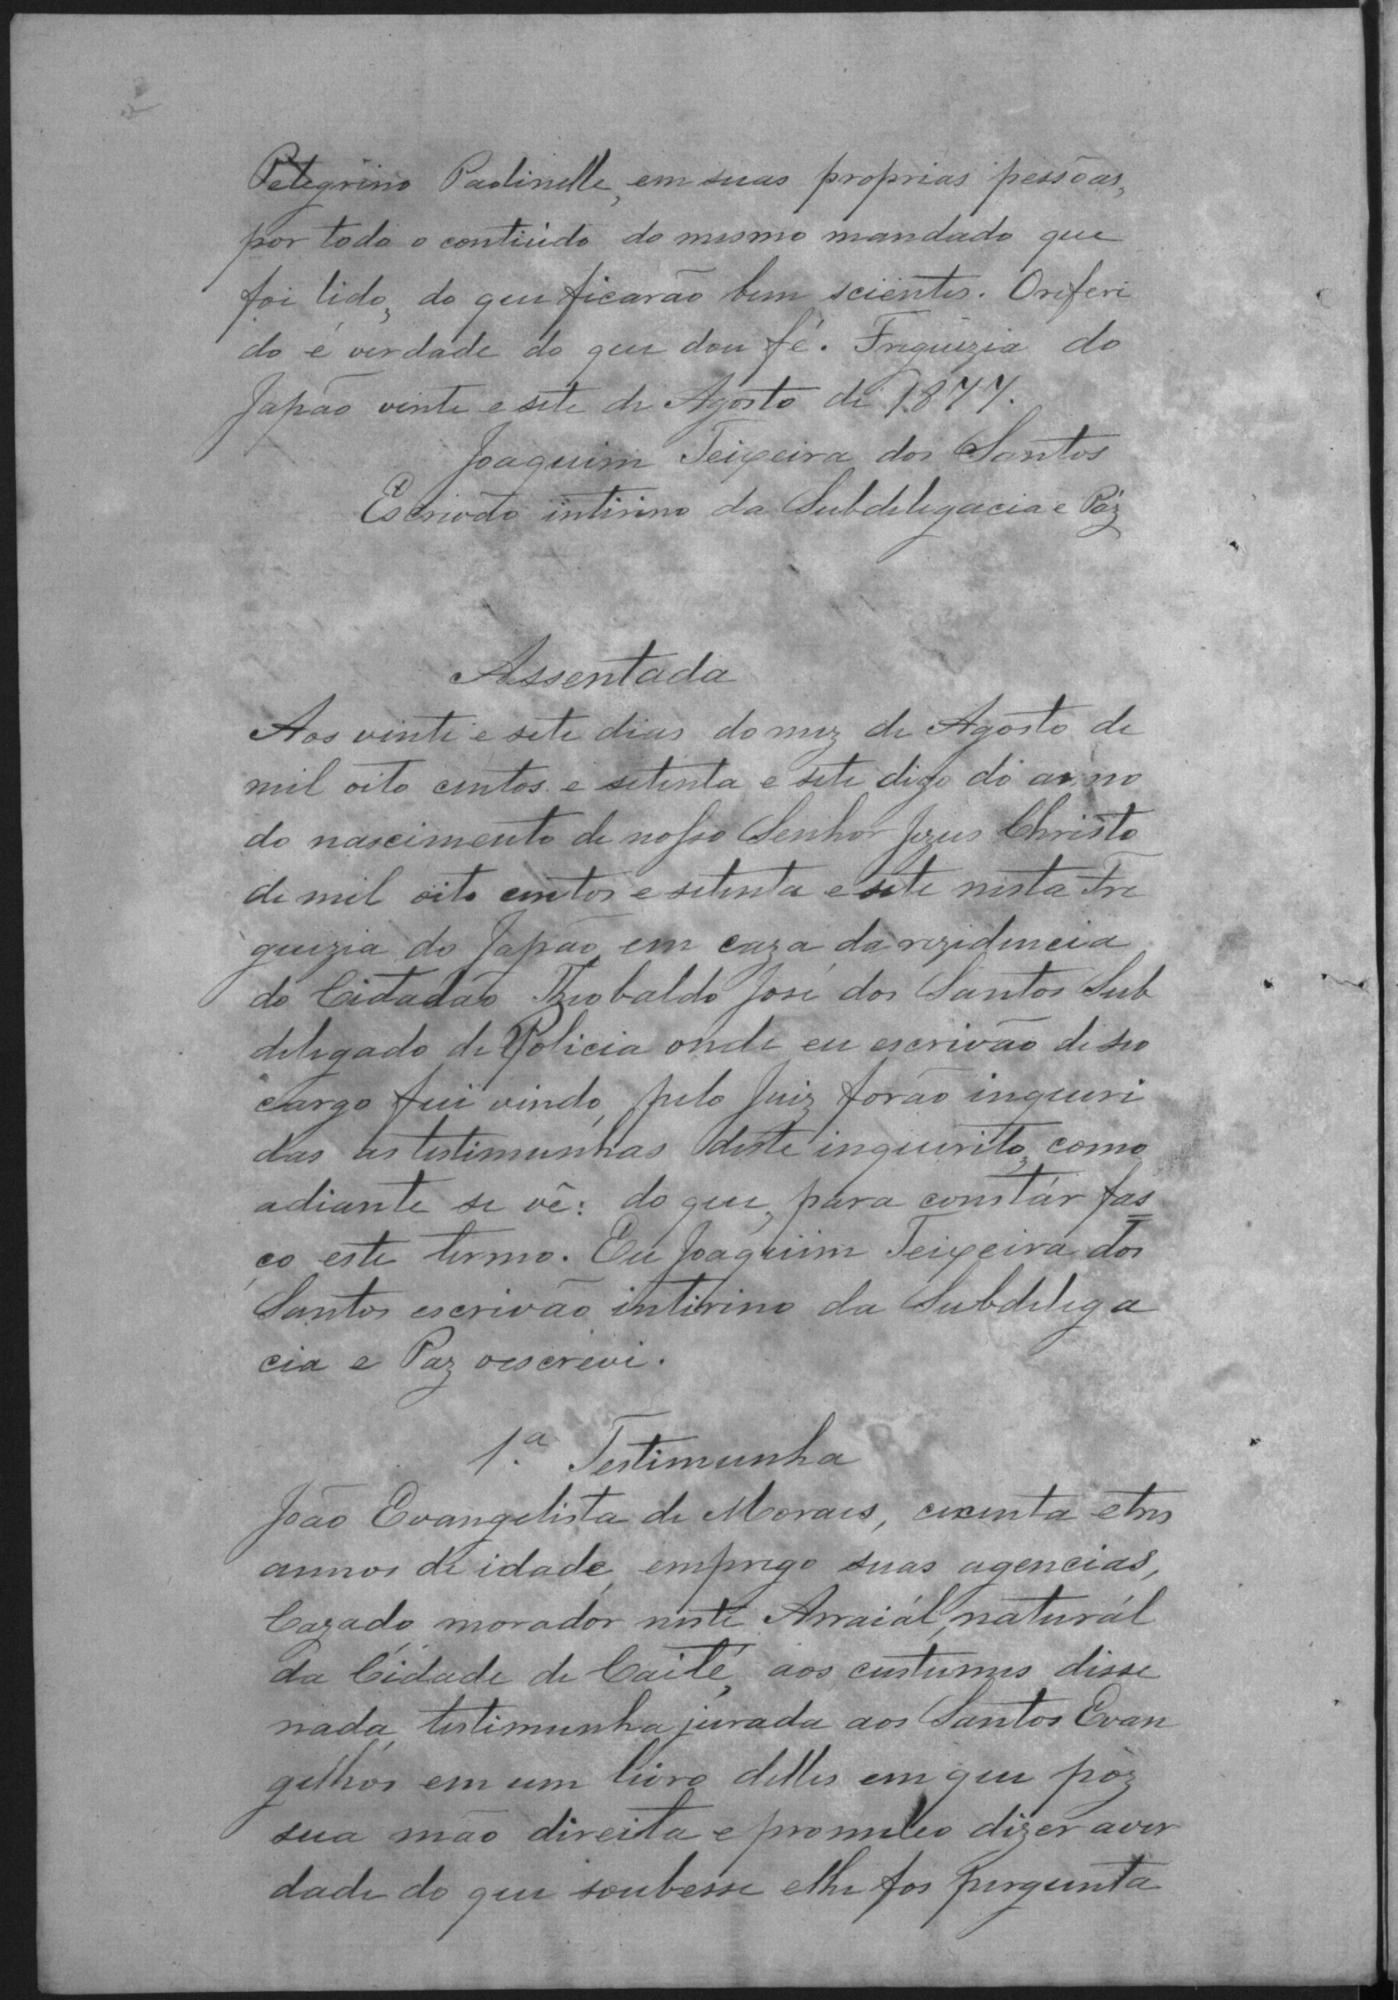 Pelegrino Paolinelle, em suas proprias pessôas,
por todo o contiúdo do mesmo mandado que
foi lido, do que ficarão bem scientes. O referi
do é verdade do que dou fé. Freguizia do
Japão vinte e sete de Agosto de 1877.
Joaquim Teixeira dos Santos
Escrivão intirino da Subdelegacia e Páz
Assentada
Aos vinte e sete dias do mez de Agosto de
mil oito centos e setenta e sete digo do anno
do nascimento de nosso Senhor Jezus Christo
de mil oito centos e setenta e sete nesta Fre
guizia do Japão em caza da rezidencia
do Cidadão Theobaldo José dos Santos Sub
delegado de Policia onde eu escrivão de seo
cargo fui vindo, pelo Juiz forão inqueri
das as testimunhas deste inquerito, como
adiante se vê: do que, para constár fas
ço este termo. Eu Joaquim Teixeira dos
Santos escrivão intirino da Subdelega
cia e Paz o escrevi.
1.ª Testimunha
João Evangelista de Moraes, cecenta e tres
annos de idade, emprego suas agencias,
Cazado morador neste Arraiál, naturál
da Cidade de Caité, aos custumes disse
nada, testimunha jurada aos Santos Evan
gelhos em um livro delles em que pôz
sua mão direita e prometeo dizer a ver
dade do que soubesse e lhe fos pergunta